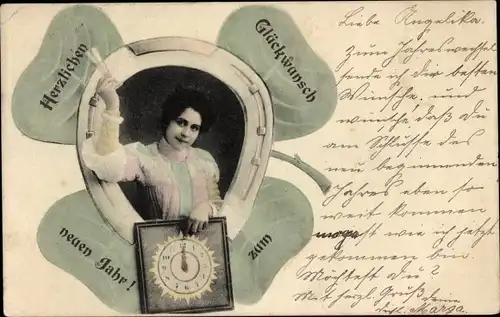 Herzlichen
Glückwunsch
zum
neuen Jahr!
Liebe Angelika.
Zum Jahreswechsel
sende ich dir besten
Wünsche, und
wünsche daß du
am Schlusse des
neu beginnenden
Jahres eben so
weit kommen
magst wie ich jetzt
gekommen bin.
Möchtest du?
Mit herzl. Gruß deine
dchl. Marga.